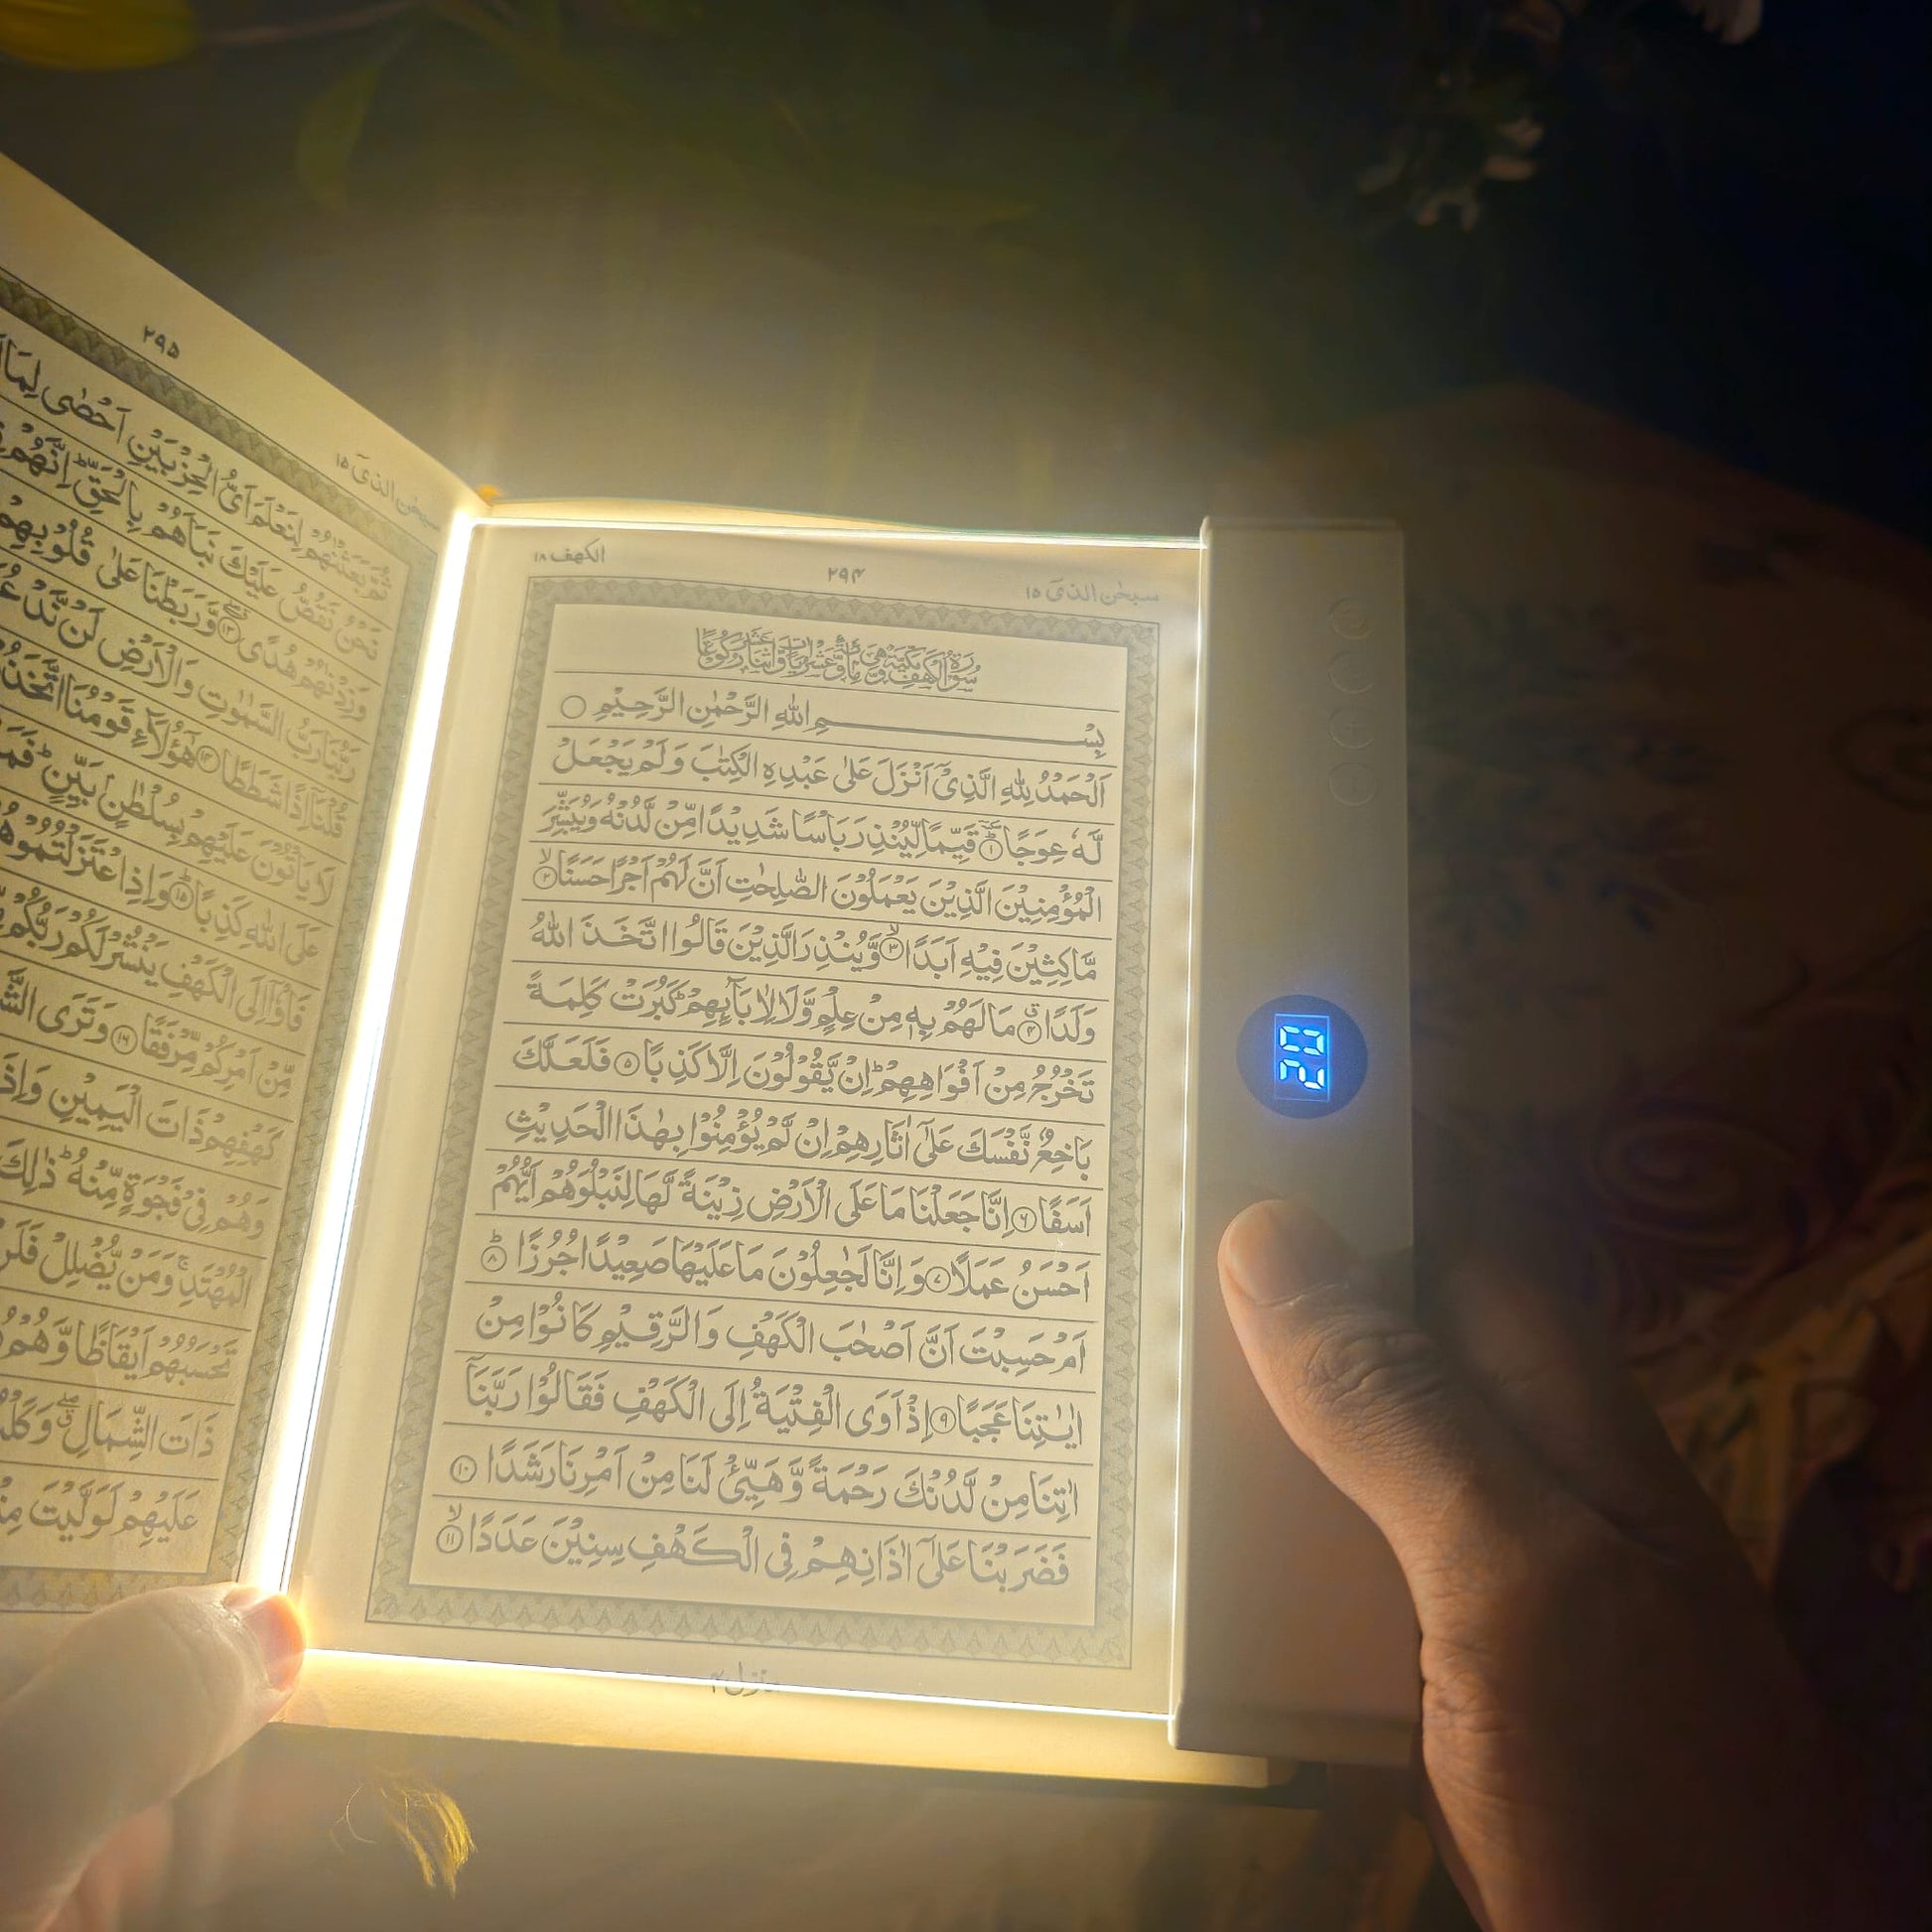 الكهف ۱۸
۲۹۴
سبحٰن الذىٓ ۱۵
سُوْرَةُ الْكَهْفِ مَكِّيَّةٌ وَّهِىَ مِائَةٌ وَّعَشْرُ اٰيَاتٍ وَّاثْنَا عَشَرَ رُكُوْعًا
بِسْمِ اللهِ الرَّحْمٰنِ الرَّحِيْمِ
اَلْحَمْدُ لِلّٰهِ الَّذِىْٓ اَنْزَلَ عَلٰى عَبْدِهِ الْكِتٰبَ وَلَمْ يَجْعَلْ
لَّهٗ عِوَجًا ۱ قَيِّمًا لِّيُنْذِرَ بَاْسًا شَدِيْدًا مِّنْ لَّدُنْهُ وَيُبَشِّرَ
الْمُؤْمِنِيْنَ الَّذِيْنَ يَعْمَلُوْنَ الصّٰلِحٰتِ اَنَّ لَهُمْ اَجْرًا حَسَنًا ۲
مَّاكِثِيْنَ فِيْهِ اَبَدًا ۳ وَّيُنْذِرَ الَّذِيْنَ قَالُوا اتَّخَذَ اللهُ
وَلَدًا ۴ مَا لَهُمْ بِهٖ مِنْ عِلْمٍ وَّلَا لِاٰبَآئِهِمْ كَبُرَتْ كَلِمَةً
تَخْرُجُ مِنْ اَفْوَاهِهِمْ اِنْ يَّقُوْلُوْنَ اِلَّا كَذِبًا ۵ فَلَعَلَّكَ
بَاخِعٌ نَّفْسَكَ عَلٰٓى اٰثَارِهِمْ اِنْ لَّمْ يُؤْمِنُوْا بِهٰذَا الْحَدِيْثِ
اَسَفًا ۶ اِنَّا جَعَلْنَا مَا عَلَى الْاَرْضِ زِيْنَةً لَّهَا لِنَبْلُوَهُمْ اَيُّهُمْ
اَحْسَنُ عَمَلًا ۷ وَاِنَّا لَجٰعِلُوْنَ مَا عَلَيْهَا صَعِيْدًا جُرُزًا ۸
اَمْ حَسِبْتَ اَنَّ اَصْحٰبَ الْكَهْفِ وَالرَّقِيْمِ كَانُوْا مِنْ
اٰيٰتِنَا عَجَبًا ۹ اِذْ اَوَى الْفِتْيَةُ اِلَى الْكَهْفِ فَقَالُوْا رَبَّنَآ
اٰتِنَا مِنْ لَّدُنْكَ رَحْمَةً وَّهَيِّئْ لَنَا مِنْ اَمْرِنَا رَشَدًا ۱۰
فَضَرَبْنَا عَلٰٓى اٰذَانِهِمْ فِى الْكَهْفِ سِنِيْنَ عَدَدًا ۱۱
منزل ۴
۲۹۵
سبحٰن الذىٓ ۱۵
ثُمَّ بَعَثْنٰهُمْ لِنَعْلَمَ اَىُّ الْحِزْبَيْنِ اَحْصٰى لِمَا
نَحْنُ نَقُصُّ عَلَيْكَ نَبَاَهُمْ بِالْحَقِّ اِنَّهُمْ
وَزِدْنٰهُمْ هُدًى ۱۳ وَّرَبَطْنَا عَلٰى قُلُوْبِهِمْ
رَبُّنَا رَبُّ السَّمٰوٰتِ وَالْاَرْضِ لَنْ
قُلْنَآ اِذًا شَطَطًا ۱۴ هٰٓؤُلَآءِ قَوْمُنَا
لَا يَاْتُوْنَ عَلَيْهِمْ بِسُلْطٰنٍ بَيِّنٍ
عَلَى اللهِ كَذِبًا ۱۵ وَاِذِ
فَاْوٗٓا اِلَى الْكَهْفِ يَنْشُرْ لَكُمْ رَبُّكُمْ
مِّنْ اَمْرِكُمْ مِّرْفَقًا ۱۶ وَتَرَى
كَهْفِهِمْ ذَاتَ الْيَمِيْنِ
وَهُمْ فِىْ فَجْوَةٍ مِّنْهُ ذٰلِكَ
الْمُهْتَدِ وَمَنْ يُّضْلِلْ
تَحْسَبُهُمْ اَيْقَاظًا وَّهُمْ
ذَاتَ الشِّمَالِ
عَلَيْهِمْ لَوَلَّيْتَ